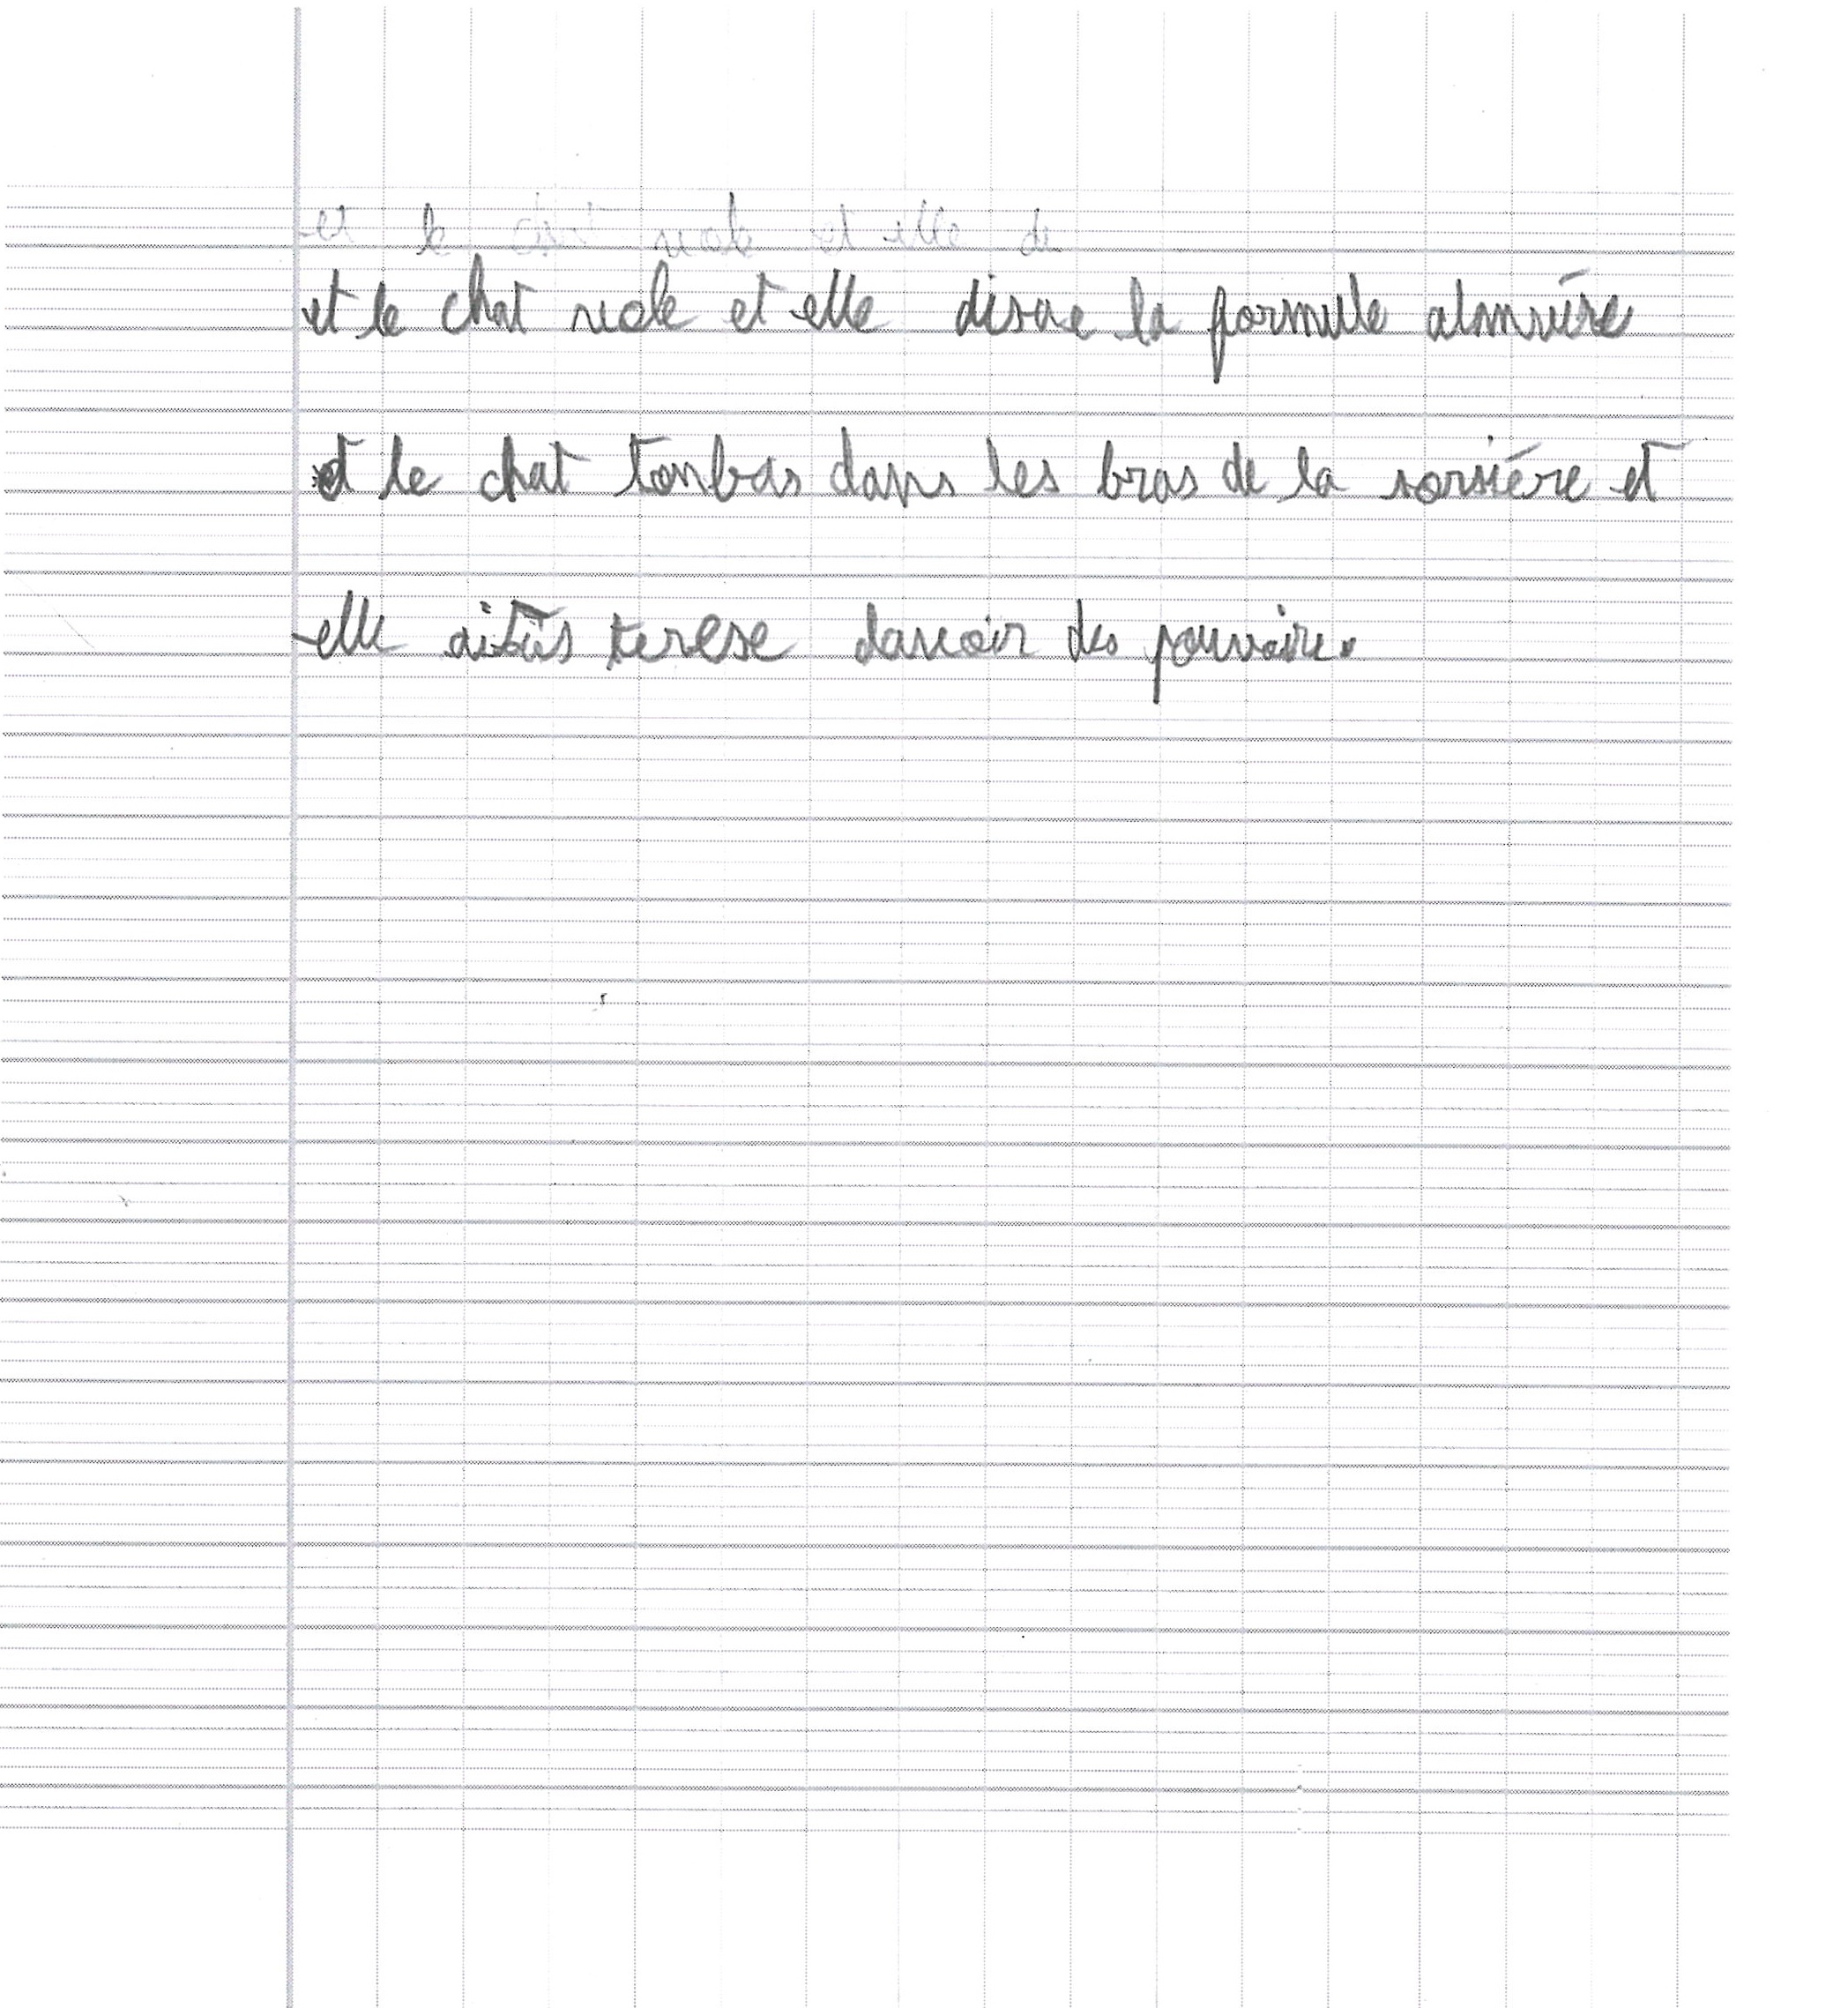 et le chat vole et elle de
et le chat vole et elle disae la formule alanvére
et le chat tonbas dans les bras de la sorsiére et
elle aitais terese davoir des pouvoire.